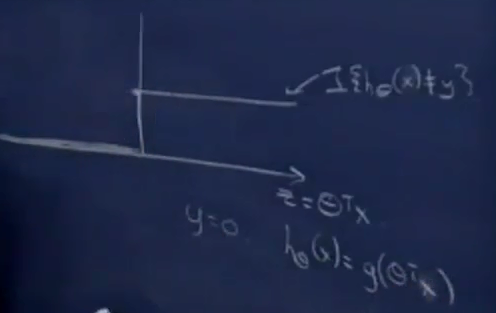 I{hθ(x)≠y}
z=θᵀx
y=0
hθ(x)=g(θᵀx)